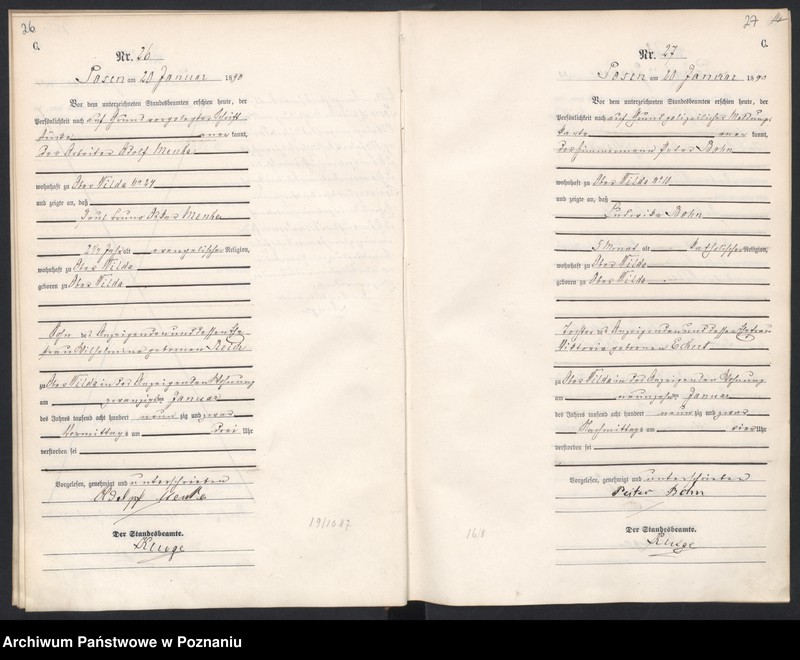 26
C.
Nr. 26
Posen am 20 Januar 1890
Vor dem unterzeichneten Standesbeamten erschien heute, der
Persönlichkeit nach auf Grund vorgelegter Schrift
kannt,
der Arbeiter Adolf Menke
wohnhaft zu Ober Wilda No 24
und zeigte an, daß
Paul Menke
alt evangelischer Religion,
wohnhaft zu Ober Wilda
geboren zu Ober Wilda
Sohn des Anzeigenden und dessen Ehe-
frau Wilhelmine geborenen
zu Ober Wilda in des Anzeigenden Wohnung
am zwanzigsten Januar
des Jahres tausend acht hundert neunzig und zwar
Vormittags um drei Uhr
verstorben sei
Vorgelesen, genehmigt und unterschrieben
Adolpf Menke
Der Standesbeamte.
Kluge
19/1087
27
C.
Nr. 27
Posen am 20 Januar 1890
Vor dem unterzeichneten Standesbeamten erschien heute, der
Persönlichkeit nach auf Grund polizeilicher Meldungs
karte kannt,
der Zimmermann Peter Bohn
wohnhaft zu Ober Wilda No
und zeigte an, daß
Ludwika Bohn
5 Monat alt katholischer Religion,
wohnhaft zu Ober Wilda
geboren zu Ober Wilda
Tochter des Anzeigenden und dessen Ehefrau
Viktoria geborenen Eckert
zu Ober Wilda in des Anzeigenden Wohnung
am neunzehnten Januar
des Jahres tausend acht hundert neunzig und zwar
Nachmittags um vier Uhr
verstorben sei
Vorgelesen, genehmigt und unterschrieben
Peiter Bohn
Der Standesbeamte.
Kluge
Archiwum Państwowe w Poznaniu